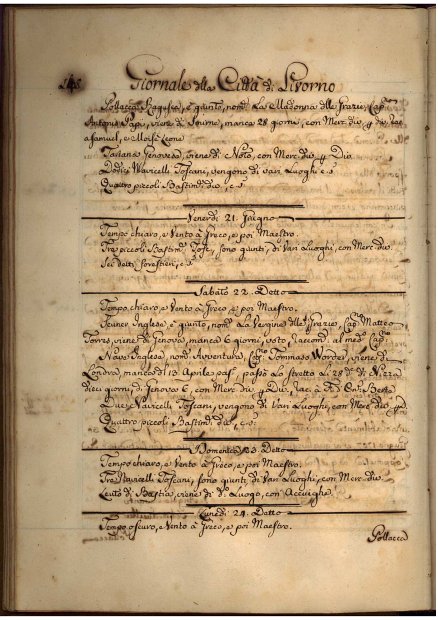 248
Giornale della Città di Livorno
Pollacca Ragusea, è giunto, nom.ta La Madonna delle Grazie, Cap.
Antonio Papi, viene di Smirne, manca 28 giorni, con Merc. div.
a Samuel, e Moisè Leone
Tartana Genovese, viene di Noto, con Merc. div. p. Div.
Navicelli Toscani, vengono di Vari Luoghi
Quattro piccoli Bastim. div.
Venerdì 21. Giugno
Tempo chiaro, e Vento à Greco, e poi Maestro.
Tre piccoli Bastim. Tosc. sono giunti, di Vari Luoghi, con Merc. div.
Sei detti forestieri,
Sabato 22. Detto
Tempo chiaro, e Vento à Greco, e poi Maestro.
Inglese, è giunto, nom. La Vergine delle Grazie, Cap. Matteo
Torres, viene di Genova, manca 6 giorni, voto, Raccom. al med. Cap.
Nave Inglese, nom. Avventura, Cap. Tommaso Worder, viene di
Londra, manca di 13 Aprile pas. passò Lo Stretto Li 28 d. di Nizza
dieci giorni, di Genova 6, con Merc. div. p. Div.
Due Navicelli Toscani, vengono di Vari Luoghi, con Merc. div.
Quattro piccoli Bastim. div.
Domenica 23. Detto
Tempo chiaro, e Vento à Greco, e poi Maestro.
Tre Navicelli Toscani, sono giunti, di Vari Luoghi, con Merc. div.
Leuto di Bastia, viene di d. Luogo, con Acciughe.
Lunedì 24. Detto
Tempo oscuro, e Vento à Greco, e poi Maestro.
Pollacca